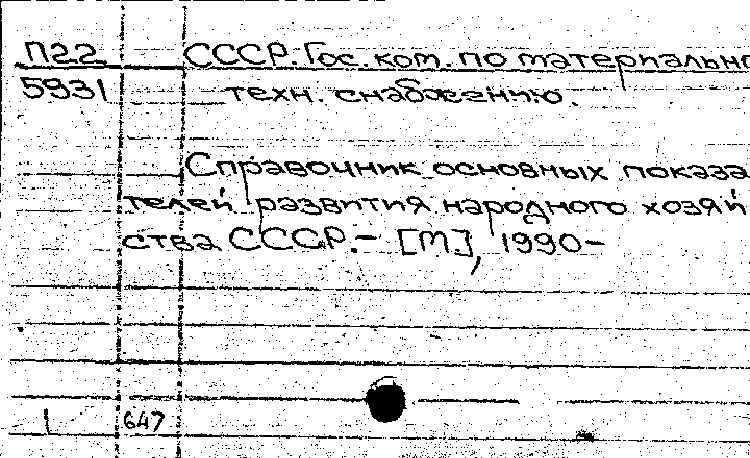 П22 СССР. Гос. ком. по материально
5931 техн. снабжению.
Справочник основных показа
телей развития народного хозяй
ства СССР. - [М.], 1990-
1 647